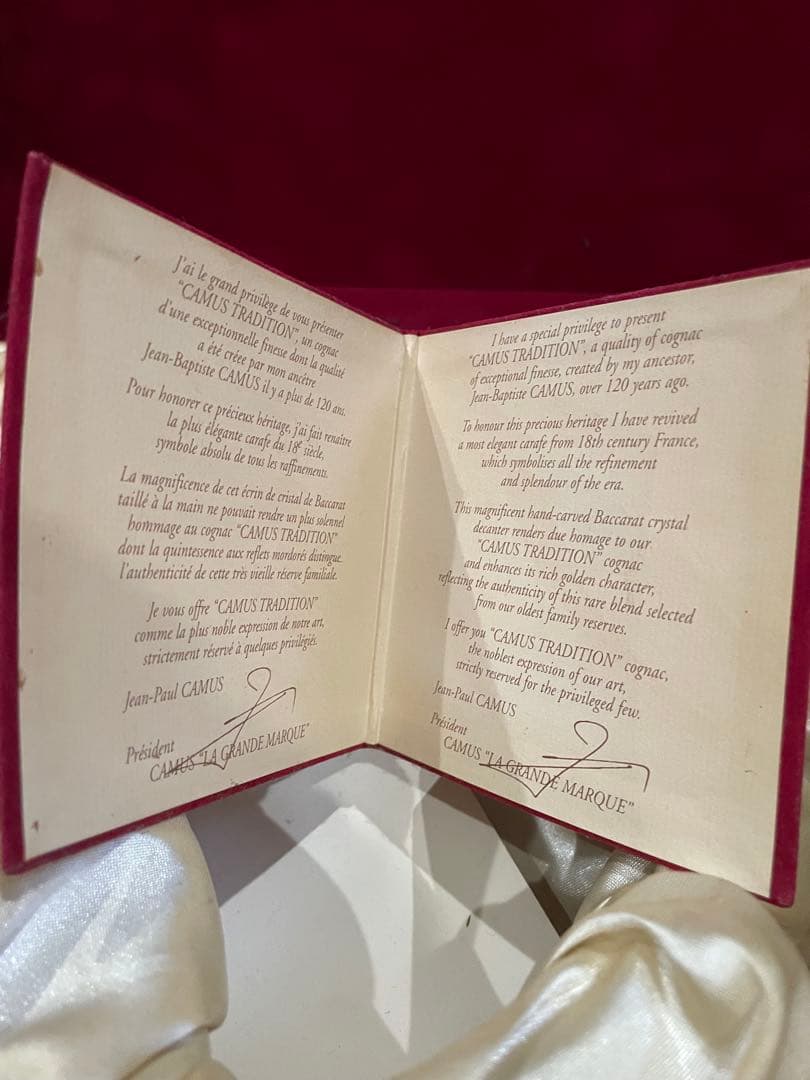 J'ai le grand privilège de vous présenter
"CAMUS TRADITION", un cognac
d'une exceptionnelle finesse dont la qualité
a été créée par mon ancêtre
Jean-Baptiste CAMUS il y a plus de 120 ans.
Pour honorer ce précieux héritage, j'ai fait renaître
la plus élégante carafe du 18e siècle,
symbole absolu de tous les raffinements.
La magnificence de cet écrin de cristal de Baccarat
taillé à la main ne pouvait rendre un plus solennel
hommage au cognac "CAMUS TRADITION"
dont la quintessence aux reflets mordorés distingue
l'authenticité de cette très vieille réserve familiale.
Je vous offre "CAMUS TRADITION"
comme la plus noble expression de notre art,
strictement réservé à quelques privilégiés.
Jean-Paul CAMUS
Président
CAMUS "LA GRANDE MARQUE"
I have a special privilege to present
"CAMUS TRADITION", a quality of cognac
of exceptional finesse, created by my ancestor,
Jean-Baptiste CAMUS, over 120 years ago.
To honour this precious heritage I have revived
a most elegant carafe from 18th century France,
which symbolises all the refinement
and splendour of the era.
This magnificent hand-carved Baccarat crystal
decanter renders due homage to our
"CAMUS TRADITION" cognac
and enhances its rich golden character,
reflecting the authenticity of this rare blend selected
from our oldest family reserves.
I offer you "CAMUS TRADITION" cognac,
the noblest expression of our art,
strictly reserved for the privileged few.
Jean-Paul CAMUS
Président
CAMUS "LA GRANDE MARQUE"